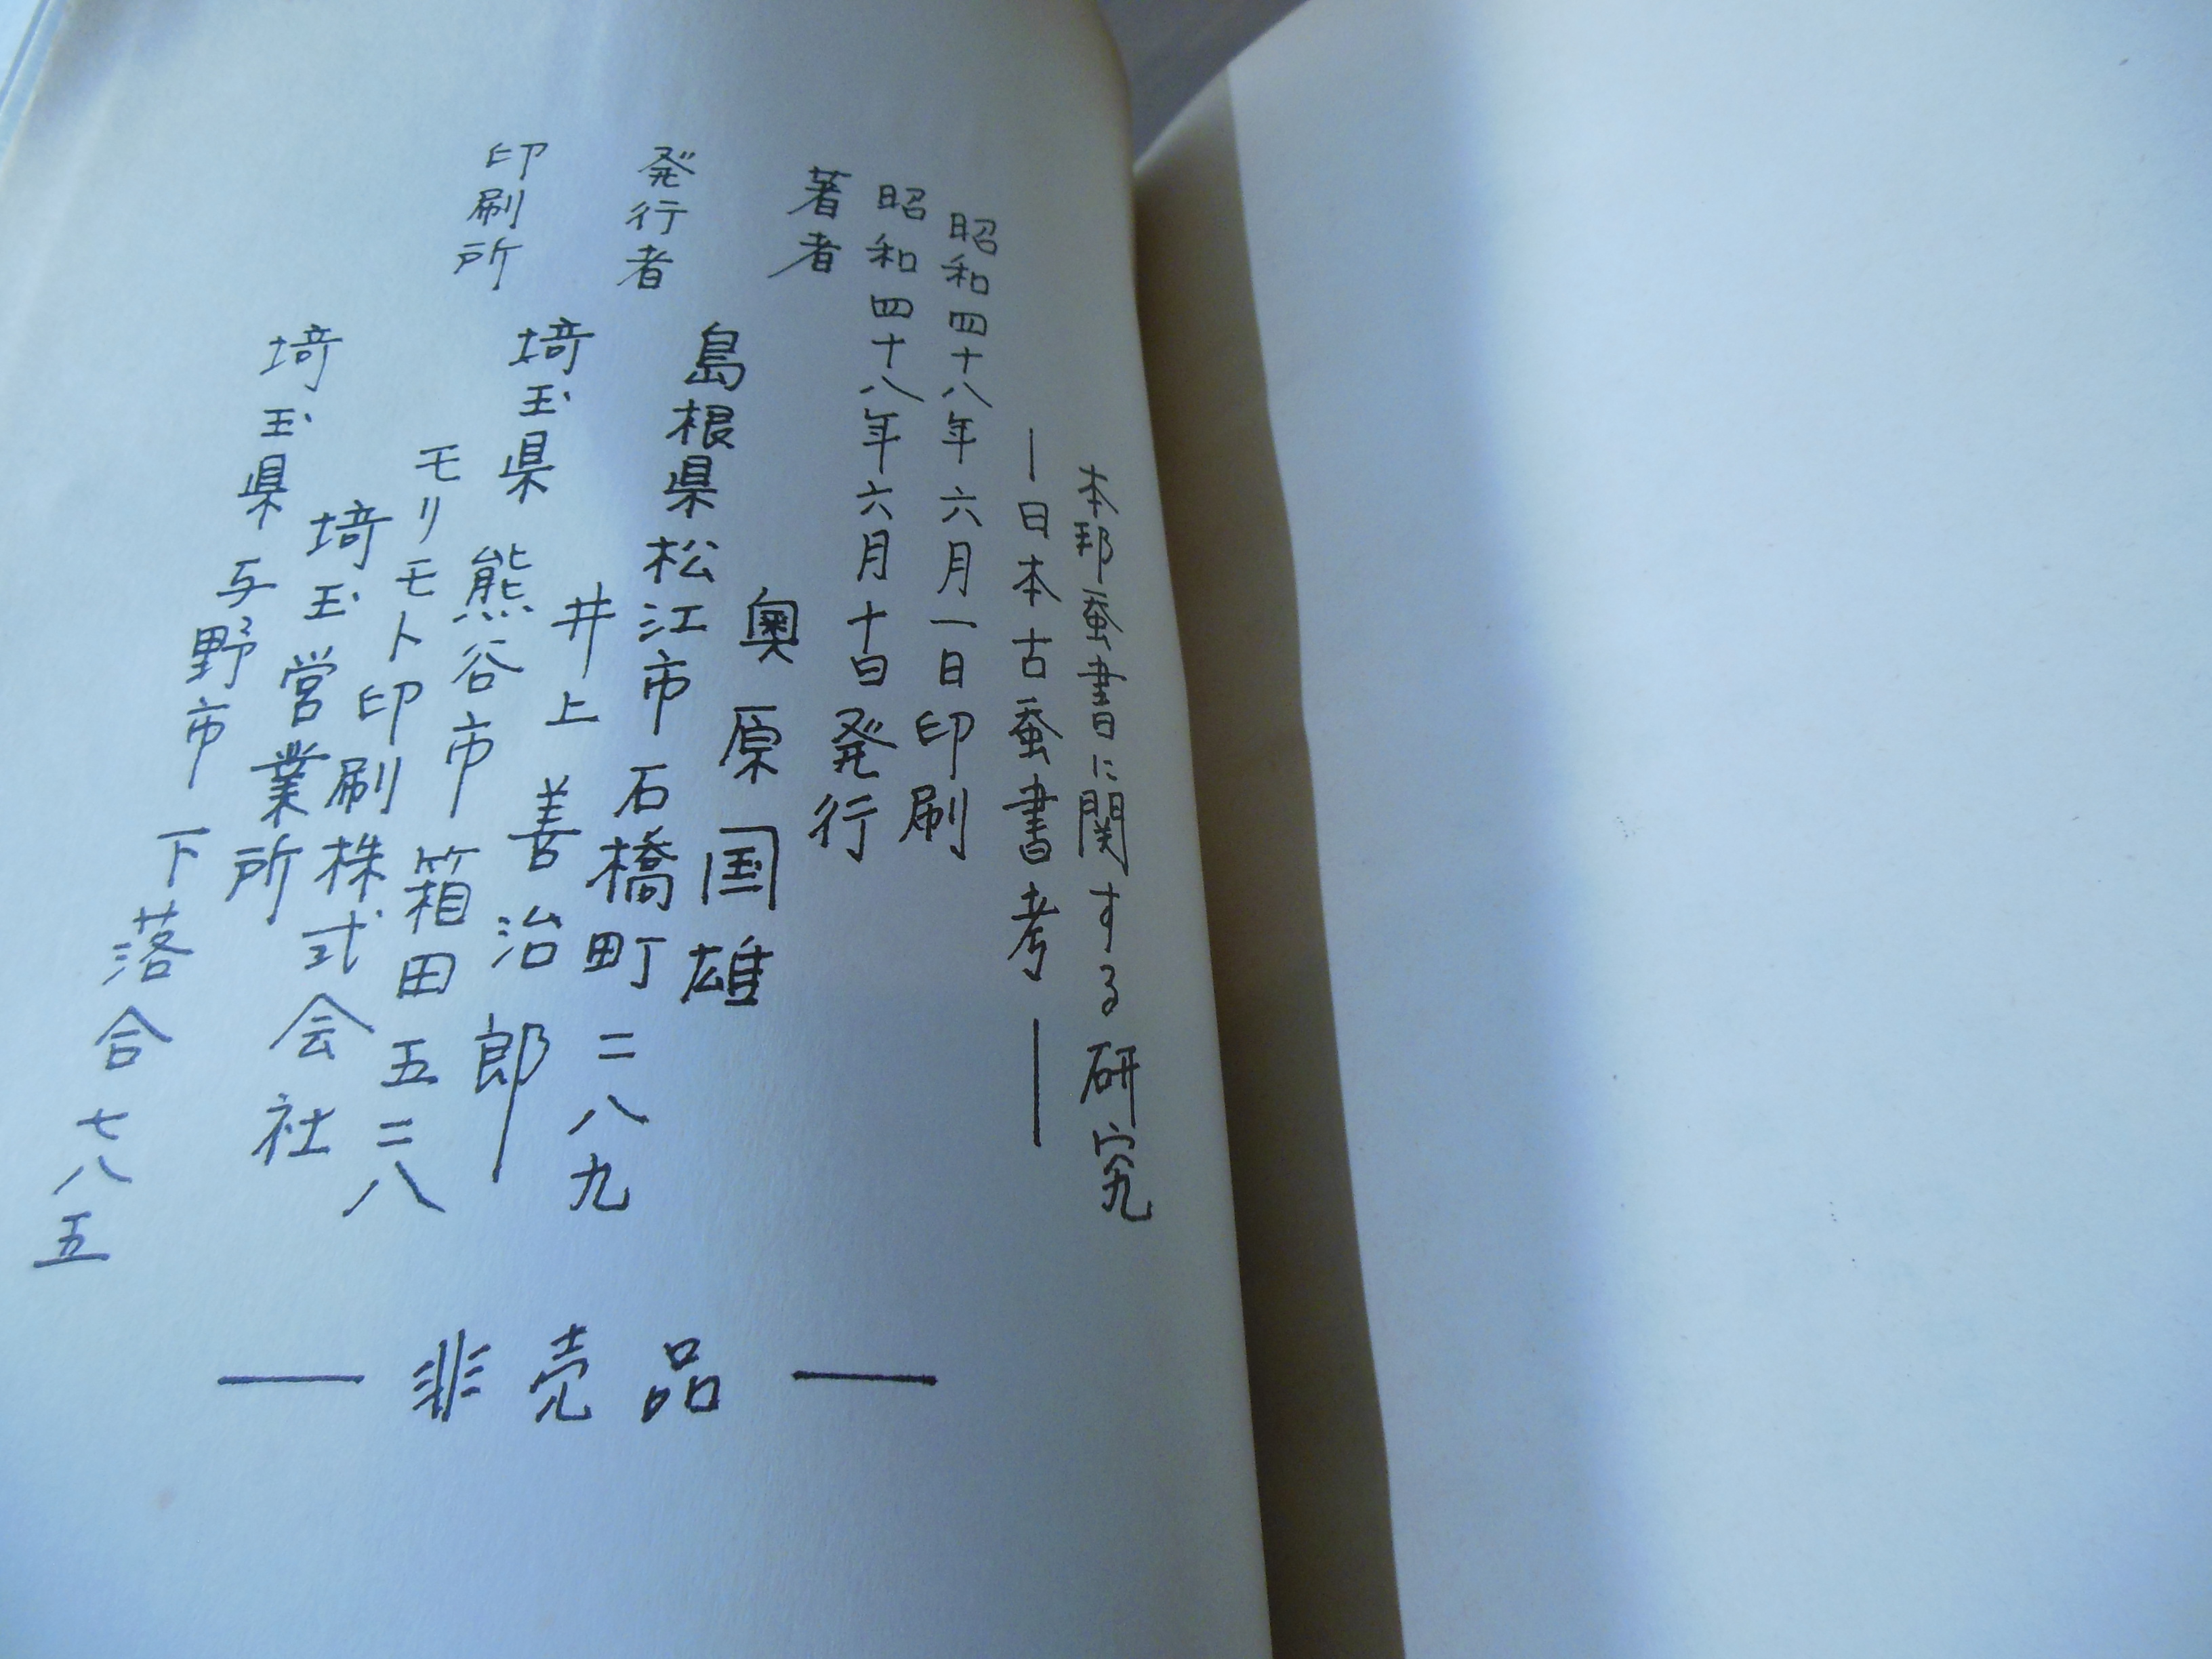 本邦蚕書に関する研究
―日本古蚕書考―
昭和四十八年六月一日印刷
昭和四十八年六月十日発行
著者 奥原国雄
島根県松江市石橋町二八九
発行者 井上善治郎
埼玉県熊谷市箱田五二八
印刷所 モリモト印刷株式会社
埼玉営業所
埼玉県与野市下落合七八五
―非売品―